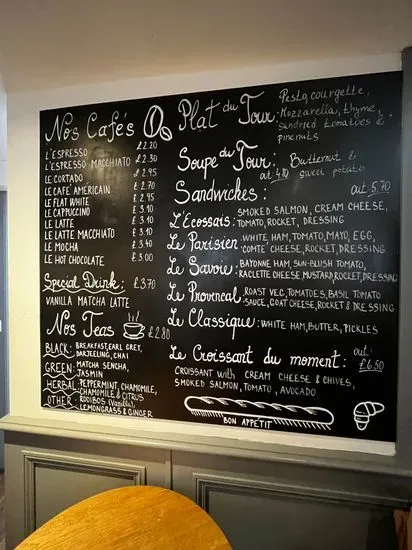 Nos Cafés
L'ESPRESSO £2.20
L'ESPRESSO MACCHIATO £2.30
LE CORTADO £2.95
LE CAFÉ AMERICAIN £2.70
LE FLAT WHITE £2.95
LE CAPPUCCINO £3.10
LE LATTE £3.10
LE LATTE MACCHIATO £3.10
LE MOCHA £3.40
LE HOT CHOCOLATE £3.00
Special Drink: £3.70
VANILLA MATCHA LATTE
Nos Teas £2.80
BLACK: BREAKFAST, EARL GREY,
DARJEELING, CHAI
GREEN: MATCHA SENCHA,
JASMIN
HERBAL: PEPPERMINT, CHAMOMILE,
CHAMOMILE & CITRUS
OTHER: ROOIBOS (Vanilla),
LEMONGRASS & GINGER
Plat du Jour: Pesto, courgette,
Mozzarella, thyme,
Sundried tomatoes &
pinenuts
Soupe du Jour: Butternut &
out 4.80 sweet potato
Sandwiches: out 5.70
L'Écossais: SMOKED SALMON, CREAM CHEESE,
TOMATO, ROCKET, DRESSING
Le Parisien: WHITE HAM, TOMATO, MAYO, EGG,
"COMTÉ" CHEESE, ROCKET, DRESSING
Le Savoie: BAYONNE HAM, SUN-BLUSH TOMATO,
RACLETTE CHEESE, MUSTARD, ROCKET, DRESSING
Le Provençal: ROAST VEG, TOMATOES, BASIL TOMATO
SAUCE, GOAT CHEESE, ROCKET & DRESSING
Le Classique: WHITE HAM, BUTTER, PICKLES
Le Croissant du moment: out:
£6.50
CROISSANT WITH CREAM CHEESE & CHIVES,
SMOKED SALMON, TOMATO, AVOCADO
BON APPÉTIT